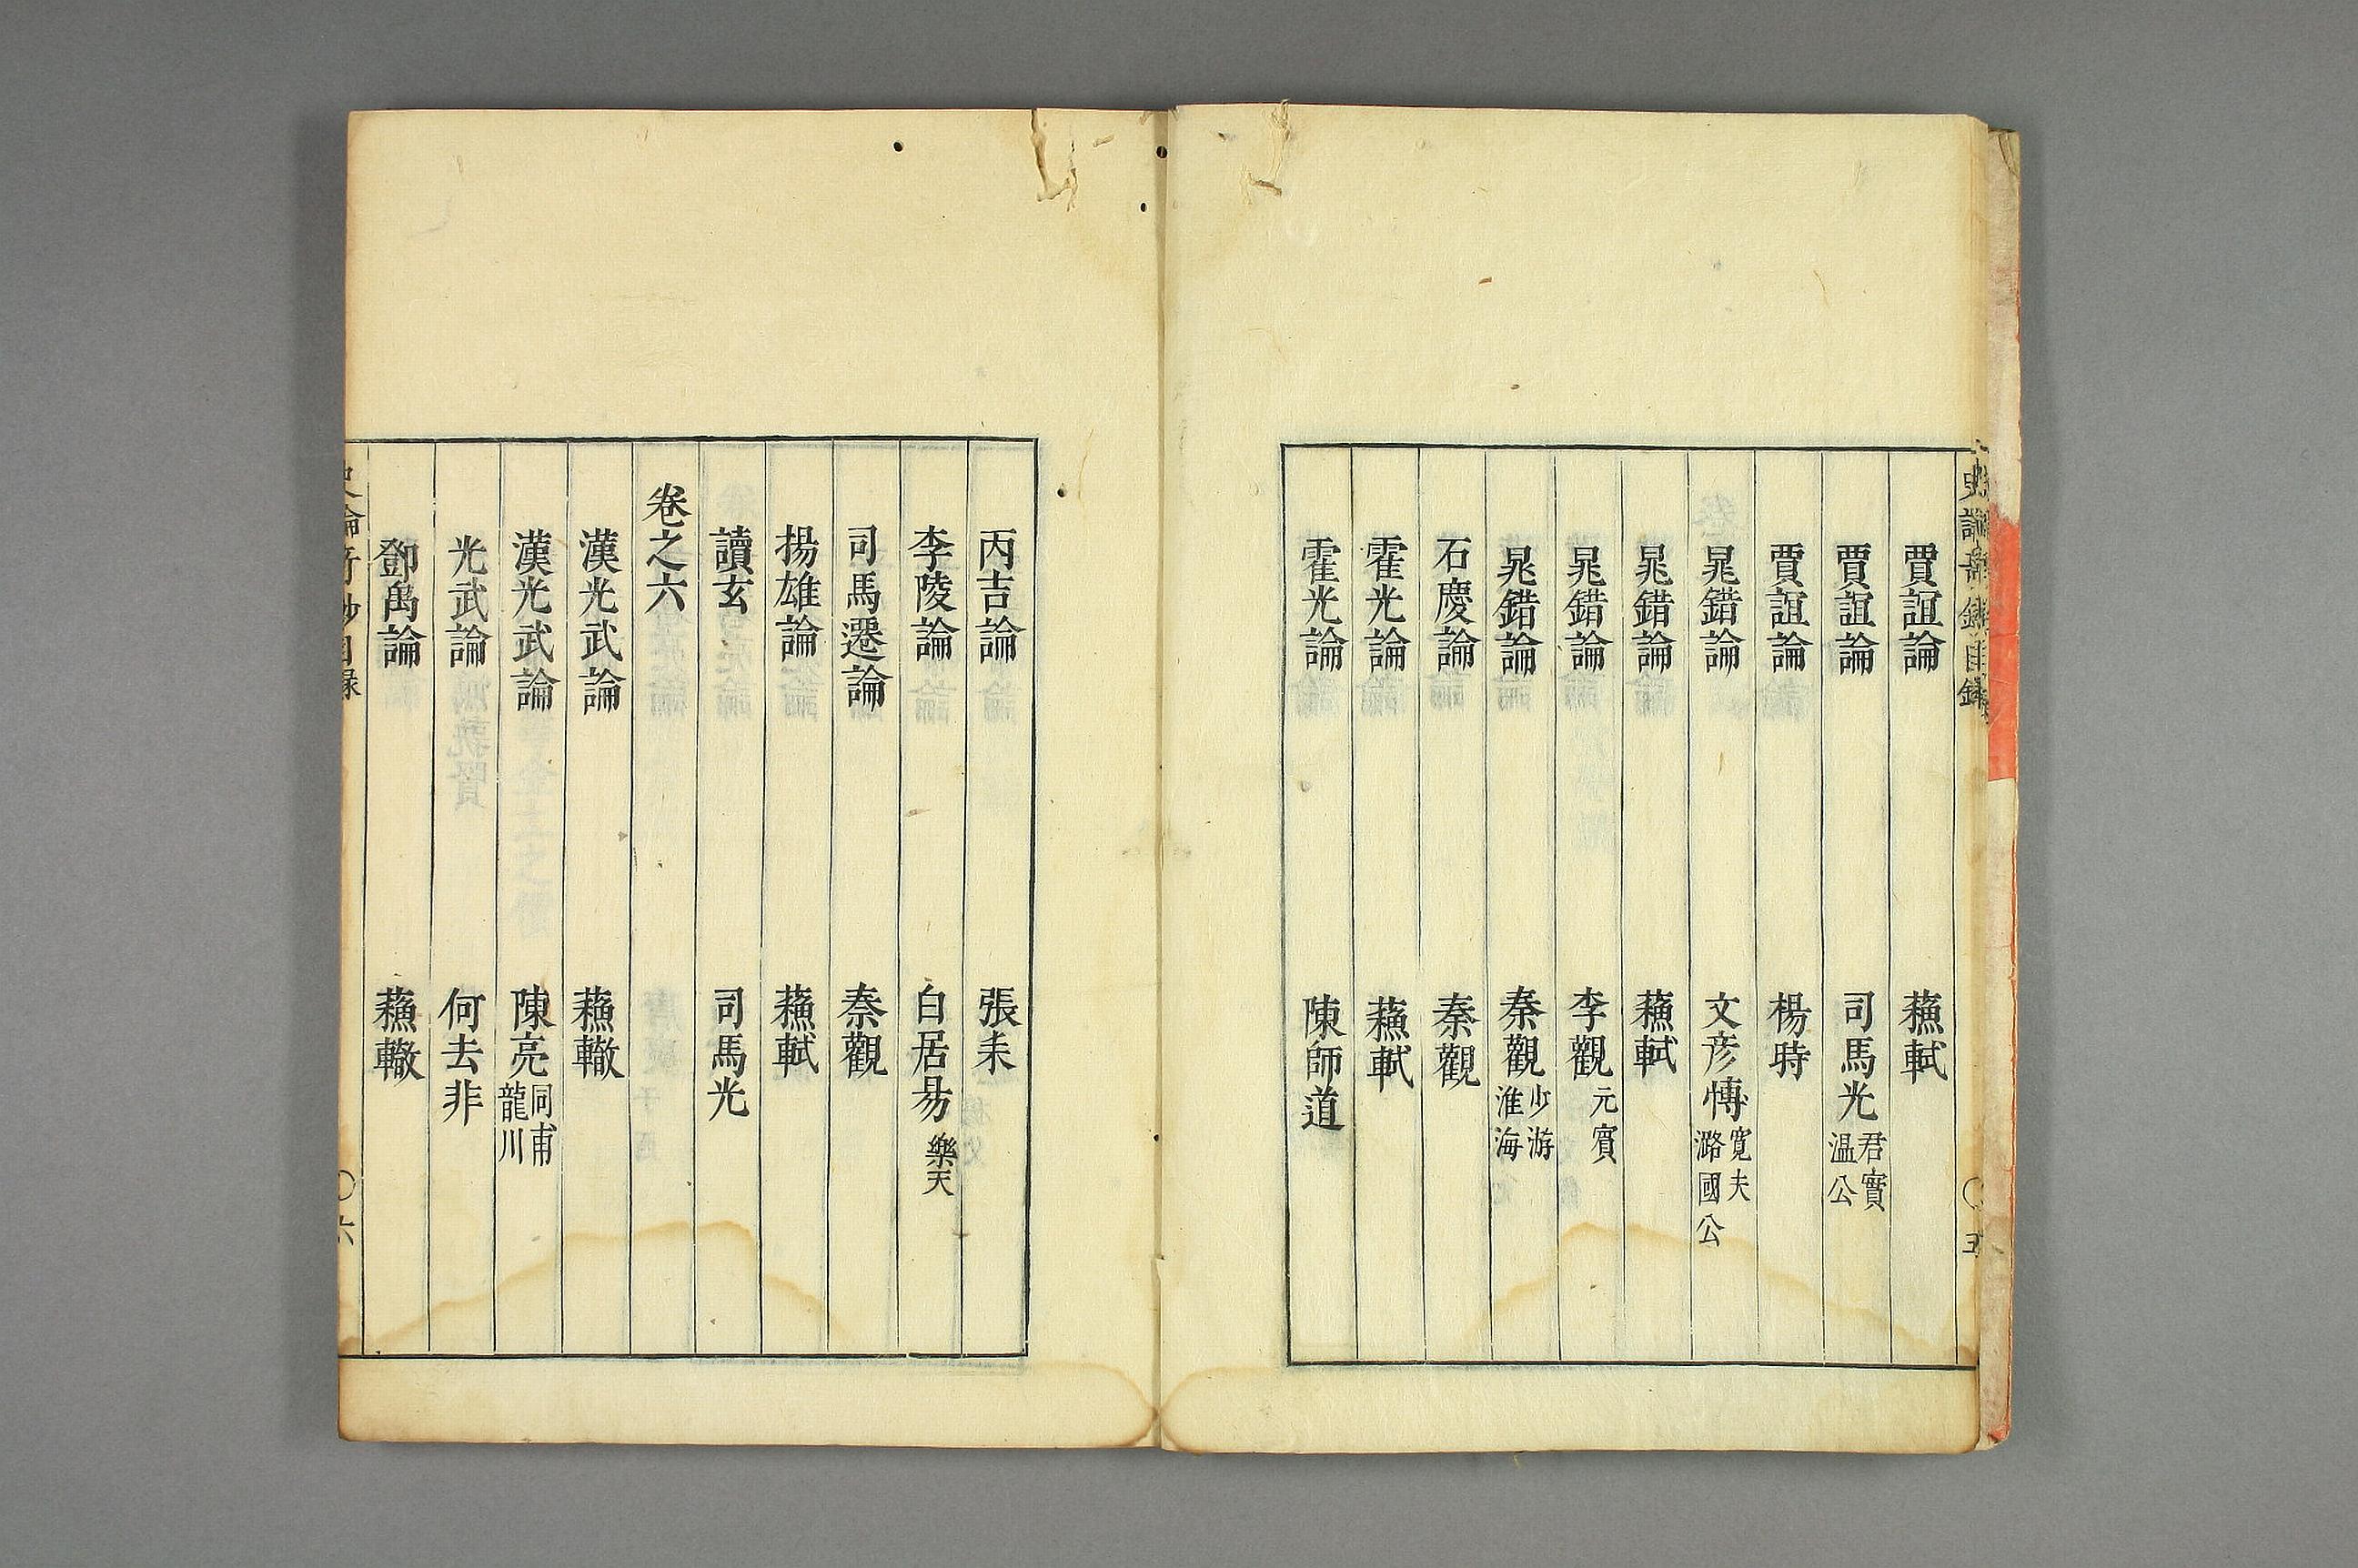 賈誼論 蘇軾
賈誼論 司馬光 君實 溫公
賈誼論 楊時
晁錯論 文彦愽 寛夫 潞國公
晁錯論 蘇軾
晁錯論 李觀 元賓
晁錯論 秦觀 少游 淮海
石慶論 秦觀
霍光論 蘇軾
霍光論 陳師道
丙吉論 張耒
李陵論 白居昜 樂天
司馬遷論 秦觀
揚雄論 蘇軾
讀玄 司馬光
卷之六
漢光武論 蘇轍
漢光武論 陳亮 同甫 龍川
光武論 何去非
鄧禹論 蘇轍